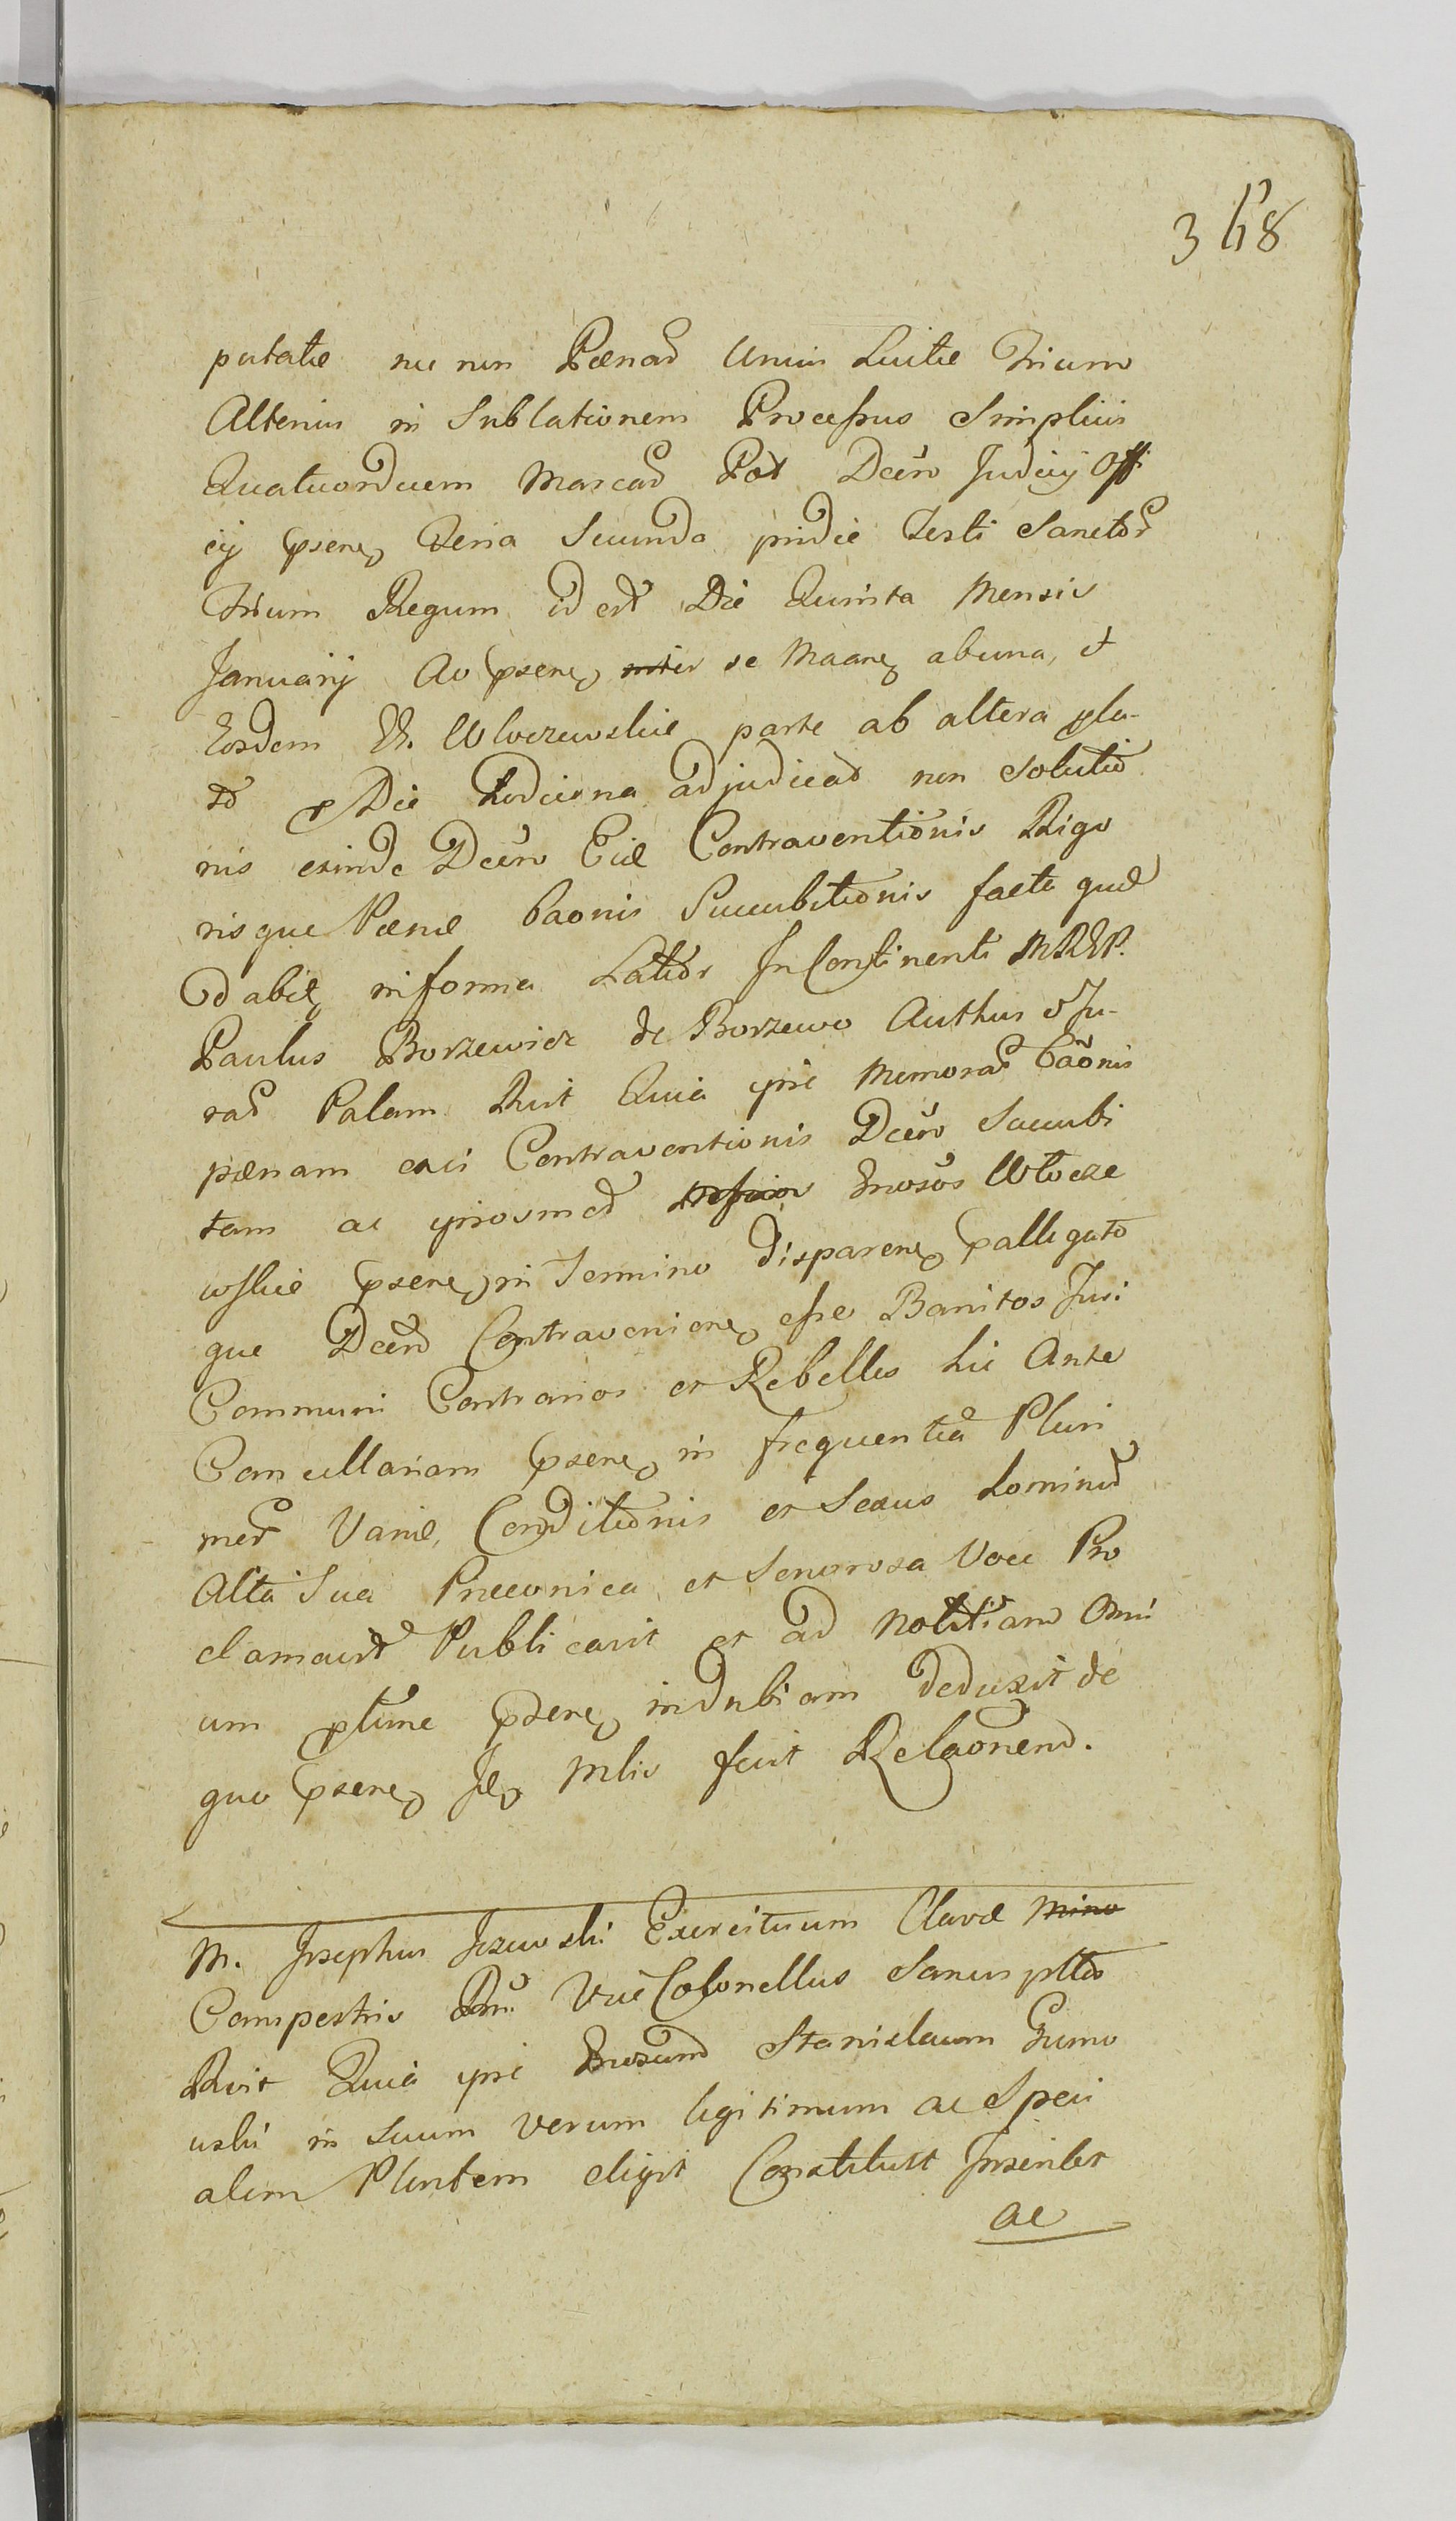 368
putatæ nec non Pænaꝝ Unius Luitæ Trium
Alterius in Sublationem Processus Simplicis
Quatuordecem Marcaꝝ Pot Dcëro Judicij Offi
cij pseneꝫ Feria Secunda pridie Festi Sanctoꝝ
Trium Regum id est Die Quinta Mensis
Januarij Ao pseneꝫ inter se Maaneꝫ abuna, et
Eosdem Wloczewskie parte ab altera
Die hodierna adjudicaꝝ non Solutio
nis exinde Dcëro Eiæ Contraventionis Rigo
risque Pænæ Baonis Succubitionis facta
informa Latior In Continenti MREP.
Paulus Borzewicz de Borzewo Authus et Ju-
raꝝ Palam Rcit Quia ipse Memoraꝝ Baönis
pænam Contraventionis Dcëro Succubi
tam ac ipsosmet Gnosos Włocze
wskie pseneꝫ in Termino disparenꝫ pallegato
que Dcëro Contravenienꝫ esse Banitos Juri
Communi Contrarios et Rebelles hic Ante
Cancellariam pseneꝫ in frequentia Pluri
moꝝ Variæ, Conditionis et Sexus hominũ
Alta Sua Præconica et Sonorosa Voce Pro
clamavit Publicavit et ad Notitiam Omni
um pseneꝫ indubiam deduxit de
quo pseneꝫ Mlis fecit Relaönem.
M. Josephus Jezewski Exercituum Clavæ Mino
Campestris Vice Colonellus Sanus
Rcit Quia ipse Gnosum Stanislaum Gumo
wski in Suum verum legitimum ac Speci
alem Plentem eligit Constituit Inscribit
ac